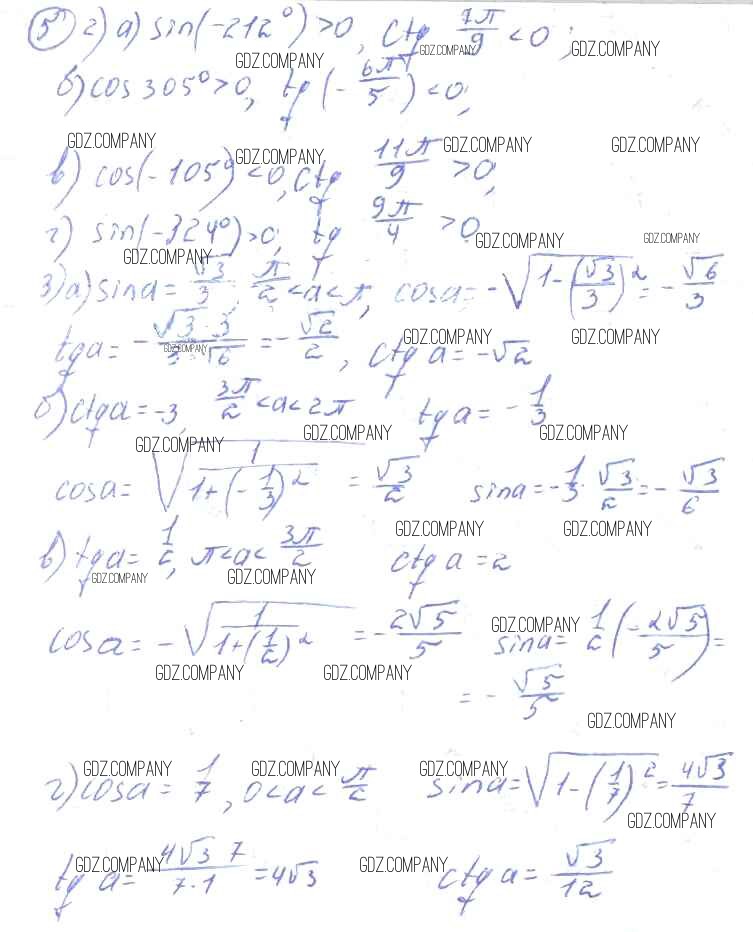 5 2) а) sin(-212°) > 0, ctg 7π/9 < 0;
GDZ.COMPANY GDZ.COMPANY GDZ.COMPANY
б) cos 305° > 0, tg(-6π/5) < 0;
GDZ.COMPANY GDZ.COMPANY GDZ.COMPANY GDZ.COMPANY
в) cos(-105°) < 0, ctg 11π/9 > 0;
г) sin(-324°) > 0, tg 9π/4 > 0
GDZ.COMPANY GDZ.COMPANY GDZ.COMPANY
3) а) sin a = √3/3, π/2 < a < π, cos a = -√(1-(√3/3)²) = -√6/3
tg a = -√3·3/3·√6 = -√2/2, ctg a = -√2
GDZ.COMPANY GDZ.COMPANY GDZ.COMPANY
б) ctg a = -3, 3π/2 < a < 2π tg a = -1/3
GDZ.COMPANY GDZ.COMPANY GDZ.COMPANY
cos a = √(1/(1+(-1/3)²)) = √3/2 sin a = -1/3·√3/2 = -√3/6
GDZ.COMPANY GDZ.COMPANY
в) tg a = 1/2, π < a < 3π/2 ctg a = 2
GDZ.COMPANY GDZ.COMPANY
cos a = -√(1/(1+(1/2)²)) = -2√5/5 sin a = 1/2(-2√5/5) =
GDZ.COMPANY GDZ.COMPANY GDZ.COMPANY
= -√5/5
GDZ.COMPANY
г) cos a = 1/7, 0 < a < π/2 sin a = √(1-(1/7)²) = 4√3/7
GDZ.COMPANY GDZ.COMPANY GDZ.COMPANY GDZ.COMPANY
tg a = 4√3·7/7·1 = 4√3 ctg a = √3/12
GDZ.COMPANY GDZ.COMPANY